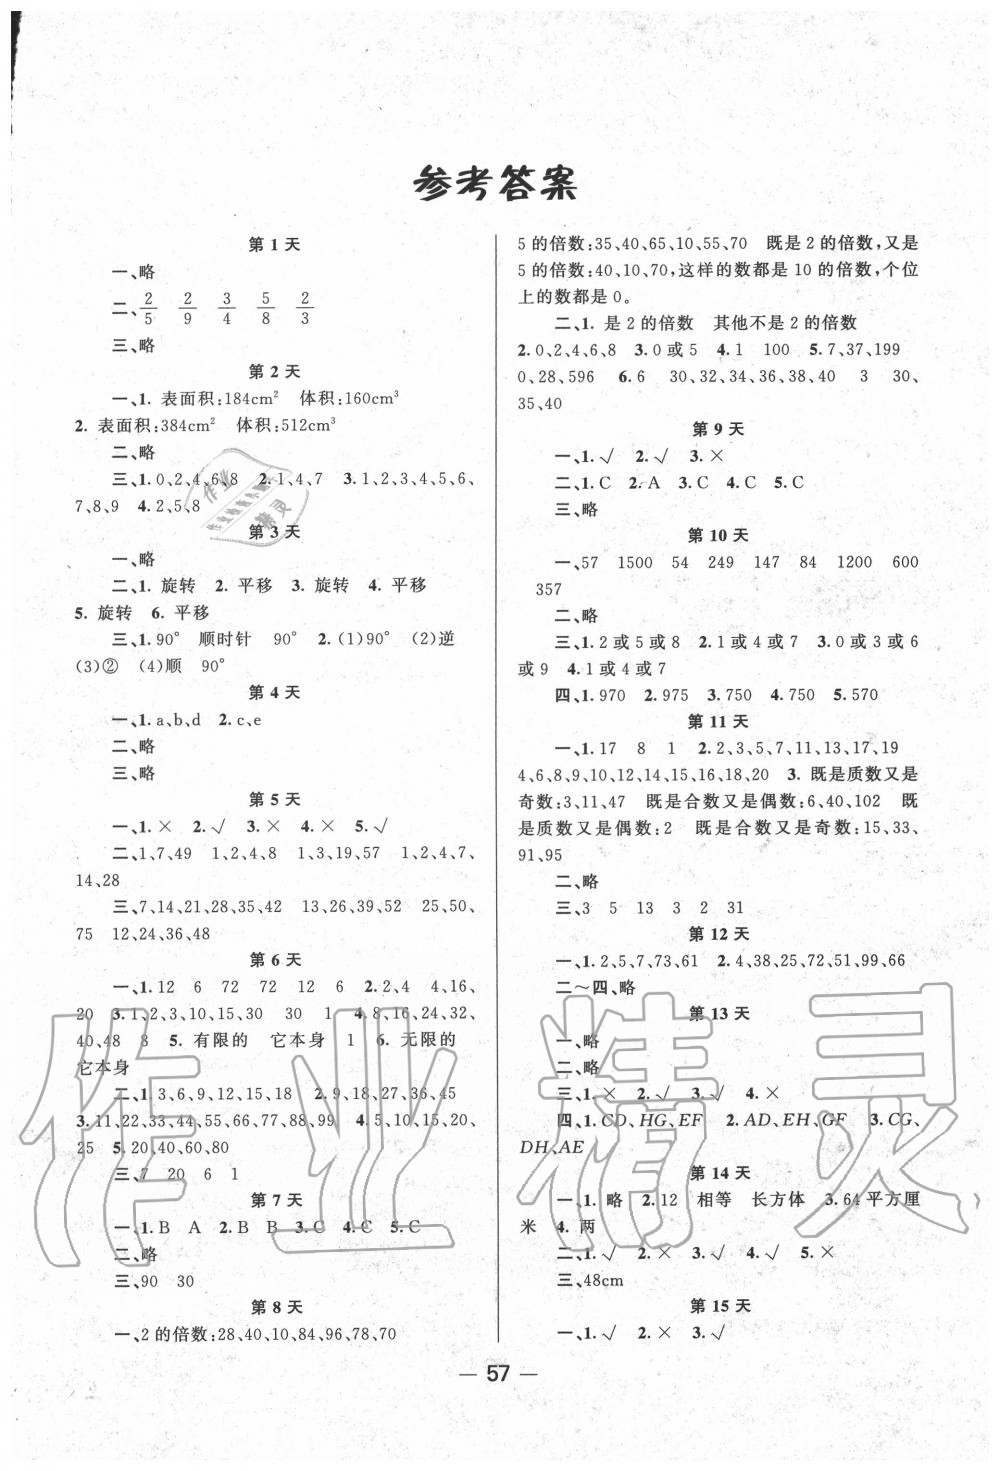 参考答案
第 1 天
一、略
二、2/5 2/9 3/4 5/8 2/3
三、略
第 2 天
一、1. 表面积:184cm² 体积:160cm³
2. 表面积:384cm² 体积:512cm³
二、略
三、1.0、2、4、6、8 2.1、4、7 3.1、2、3、4、5、6、
7、8、9 4.2、5、8
第 3 天
一、略
二、1. 旋转 2. 平移 3. 旋转 4. 平移
5. 旋转 6. 平移
三、1.90° 顺时针 90° 2.(1)90° (2)逆
(3)② (4)顺 90°
第 4 天
一、1.a、b、d 2.c、e
二、略
三、略
第 5 天
一、1.× 2.√ 3.× 4.× 5.√
二、1、7、49 1、2、4、8 1、3、19、57 1、2、4、7、
14、28
三、7、14、21、28、35、42 13、26、39、52 25、50、
75 12、24、36、48
第 6 天
一、1.12 6 72 72 12 6 2.2、4 4、16、
20 3.1、2、3、10、15、30 30 1 4.8、16、24、32、
40、48 8 5. 有限的 它本身 1 6. 无限的
它本身
二、1.3、6、9、12、15、18 2.9、18、27、36、45
3.11、22、33、44、55、66、77、88、99 4.5、10、15、20、
25 5.20、40、60、80
三、7 20 6 1
第 7 天
一、1.B A 2.B B 3.C 4.C 5.C
二、略
三、90 30
第 8 天
一、2的倍数:28、40、10、84、96、78、70
5 的倍数:35、40、65、10、55、70 既是 2 的倍数,又是
5 的倍数:40、10、70,这样的数都是 10 的倍数,个位
上的数都是 0。
二、1. 是 2 的倍数 其他不是 2 的倍数
2.0、2、4、6、8 3.0 或 5 4.1 100 5.7、37、199
0、28、596 6.6 30、32、34、36、38、40 3 30、
35、40
第 9 天
一、1.√ 2.√ 3.×
二、1.C 2.A 3.C 4.C 5.C
三、略
第 10 天
一、57 1500 54 249 147 84 1200 600
357
二、略
三、1.2 或 5 或 8 2.1 或 4 或 7 3.0 或 3 或 6
或 9 4.1 或 4 或 7
四、1.970 2.975 3.750 4.750 5.570
第 11 天
一、1.17 8 1 2.2、3、5、7、11、13、17、19
4、6、8、9、10、12、14、15、16、18、20 3. 既是质数又是
奇数:3、11、47 既是合数又是偶数:6、40、102 既
是质数又是偶数:2 既是合数又是奇数:15、33、
91、95
二、略
三、3 5 13 3 2 31
第 12 天
一、1.2、5、7、73、61 2.4、38、25、72、51、99、66
二~四、略
第 13 天
一、略
二、略
三、1.× 2.√ 3.√ 4.×
四、1.CD、HG、EF 2.AD、EH、GF 3.CG、
DH、AE
第 14 天
一、1. 略 2.12 相等 长方体 3.64 平方厘
米 4. 两
二、1.√ 2.× 3.√ 4.√ 5.×
三、48cm
第 15 天
一、1.√ 2.× 3.√
— 57 —
作业精灵